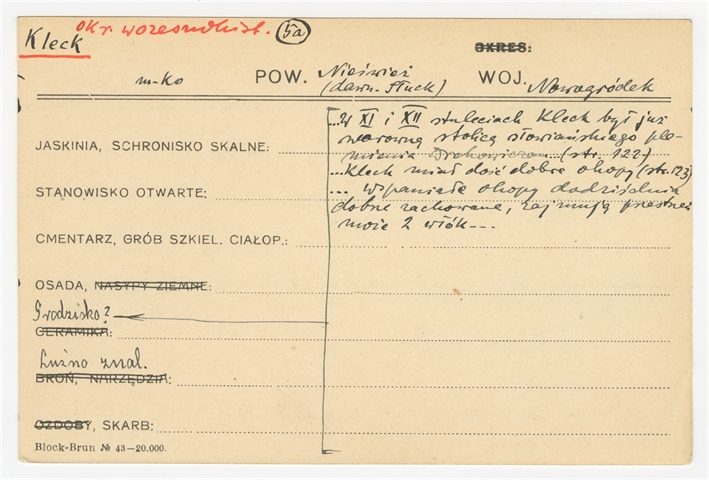 Kleck okr. wczesnohist. 5a
OKRES:
m-ko POW. Nieśwież WOJ. Nowogródek
(dawn. Słuck)
...W XI i XII stuleciach Kleck był już
warowną stolicą słowiańskiego ple-
JASKINIA, SCHRONISKO SKALNE:
mienia Drehowiczan...(str. 122)
...Kleck miał dość dobre okopy (str. 123)
STANOWISKO OTWARTE:
... Wspaniałe okopy dodziśdnia
dobrze zachowane, zajmują przestrzeń
może 2 włók...
CMENTARZ, GRÓB SZKIEL. CIAŁOP.:
OSADA, NASYPY ZIEMNE:
Grodzisko?
CERAMIKA:
Luźno znal.
BROŃ, NARZĘDZIA:
OZDOBY, SKARB:
Block-Brun № 43—20.000.